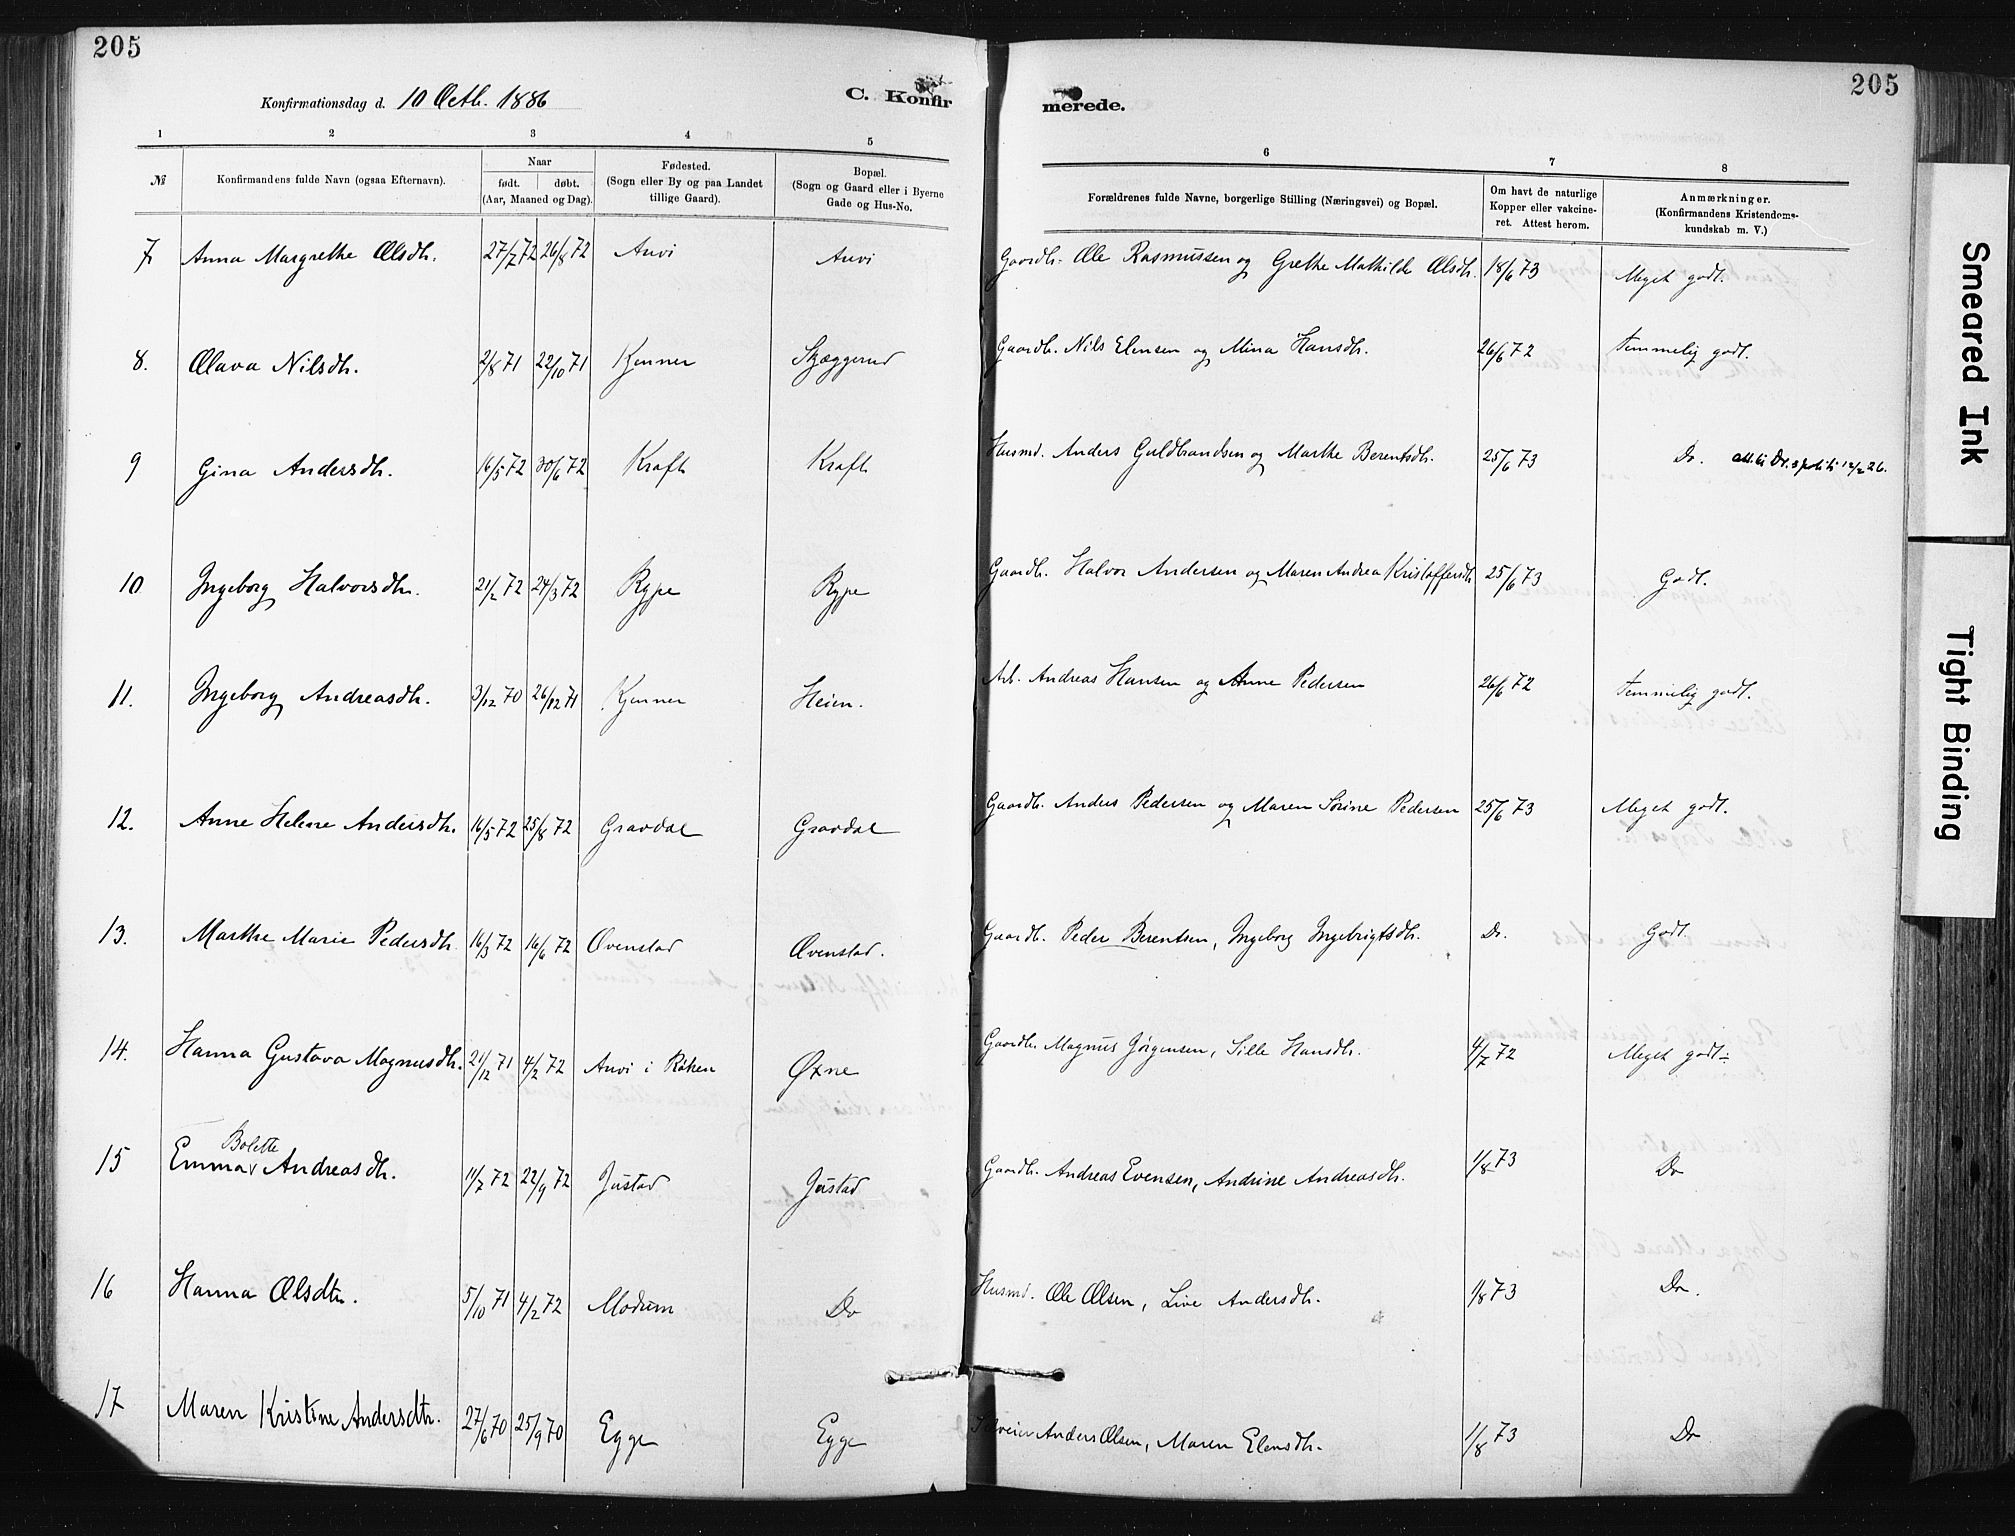 205
205
Konfirmationsdag d. 10 Octb. 1886
C. Konfir
merede.
1 2 3 4 5 6 7 8
№
Konfirmandens fulde Navn (ogsaa Efternavn).
Naar
født. døbt.
(Aar, Maaned og Dag).
Fødested.
(Sogn eller By og paa Landet
tillige Gaard).
Bopæl.
(Sogn og Gaard eller i Byerne
Gade og Hus-No.
Forældrenes fulde Navne, borgerlige Stilling (Næringsvei) og Bopæl.
Om havt de naturlige
Kopper eller vakcine-
ret. Attest herom.
Anmærkninger.
(Konfirmandens Kristendoms-
kundskab m. V.)
7 Anna Margrethe Olsdh. 27/7 72 26/8 72 Auvi Auvi Gaardb. Ole Rasmussen og Grethe Mathilde Olsdh. 18/6 73 Meget godt.
8. Olava Nilsdh. 2/8 71 22/10 71 Kjenner Skjæggerud Gaardb. Nils Elensen og Mina Hansdh. 26/6 72 Temmelig godt.
9 Gina Andersdh. 16/5 72 30/6 72 Kraft Kraft Husmd. Anders Guldbrandsen og Marthe Berentsdh. 25/6 73 Do.
10 Ingeborg Halvorsdh. 21/2 72 24/3 72 Rype Rype Gaardb. Halvor Andersen og Maren Andrea Kristoffersdh 25/6 73 Godt.
11. Ingeborg Andreasdh. 3/12 70 26/12 71 Kjenner Heien. Arb. Andreas Hansen og Anne Pedersen 26/6 72 Temmelig godt.
12. Anne Helene Andersdh. 16/5 72 25/8 72 Gravdal Gravdal Gaardb. Anders Pedersen og Maren Sørine Pedersen 25/6 73 Meget godt.
13. Marthe Marie Pedersdh. 16/3 72 16/6 72 Ovenstad Ovenstad. Gaardb. Peder Berentsen, Ingeborg Ingebrigtsdh. Do. Godt.
14. Hanna Gustava Magnusdh. 21/12 71 4/2 72 Auvi i Røken Øxne Gaardb. Magnus Jörgensen, Sille Hansdh. 4/7 72 Meget godt÷
Bolette
15 Emma Andreasdh. 11/7 72 22/9 72 Justad Justad Gaardb. Andreas Evensen, Andrine Andreasdh. 1/8 73 Do
16 Hanna Olsdtr. 5/10 71 4/2 72 Modum Do Husmd. Ole Olsen, Live Andersdh. 1/8 73 Do.
17 Maren Kristine Andersdtr. 27/6 70 25/9 70 Egge Egge Anders Olsen, Maren Elensdh. 1/8 73 Do
Smeared Ink
Tight Binding